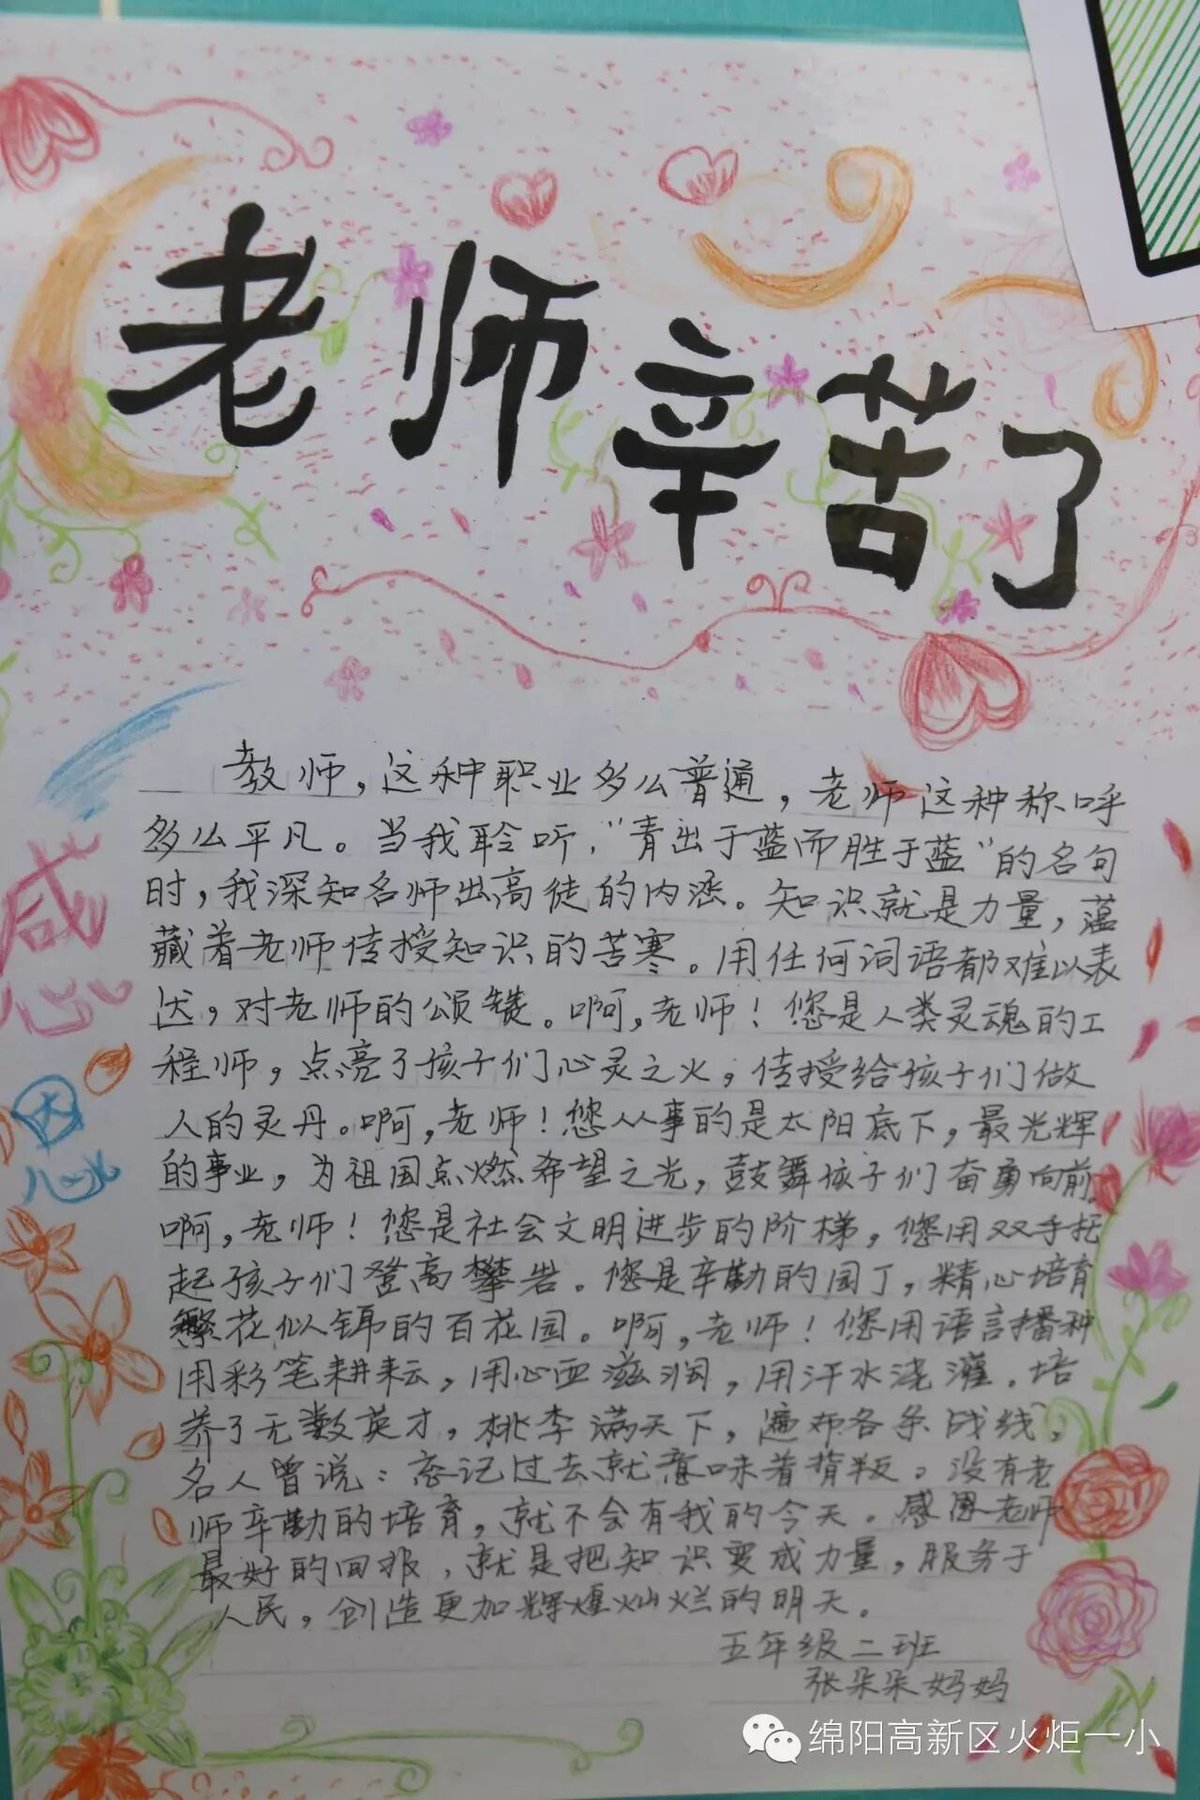 老师辛苦了
感
恩
教师,这种职业多么普通,老师这种称呼
多么平凡。当我聆听,"青出于蓝而胜于蓝"的名句
时,我深知名师出高徒的内涵。知识就是力量,蕴
藏着老师传授知识的苦寒。用任何词语都难以表
达,对老师的颂赞。啊,老师!您是人类灵魂的工
程师,点亮了孩子们心灵之火,传授给孩子们做
人的灵丹。啊,老师!您从事的是太阳底下,最光辉
的事业,为祖国点燃希望之光,鼓舞孩子们奋勇向前。
啊,老师!您是社会文明进步的阶梯,您用双手托
起孩子们登高攀岩。您是辛勤的园丁,精心培育
繁花似锦的百花园。啊,老师!您用语言播种
用彩笔耕耘,用心血滋润,用汗水浇灌。培
养了无数英才,桃李满天下,遍布各条战线,
名人曾说:忘记过去就意味着背叛。没有老
师辛勤的培育,就不会有我的今天。感恩老师
最好的回报,就是把知识变成力量,服务于
人民,创造更加辉煌灿烂的明天。
五年级二班
张朵朵妈妈
绵阳高新区火炬一小